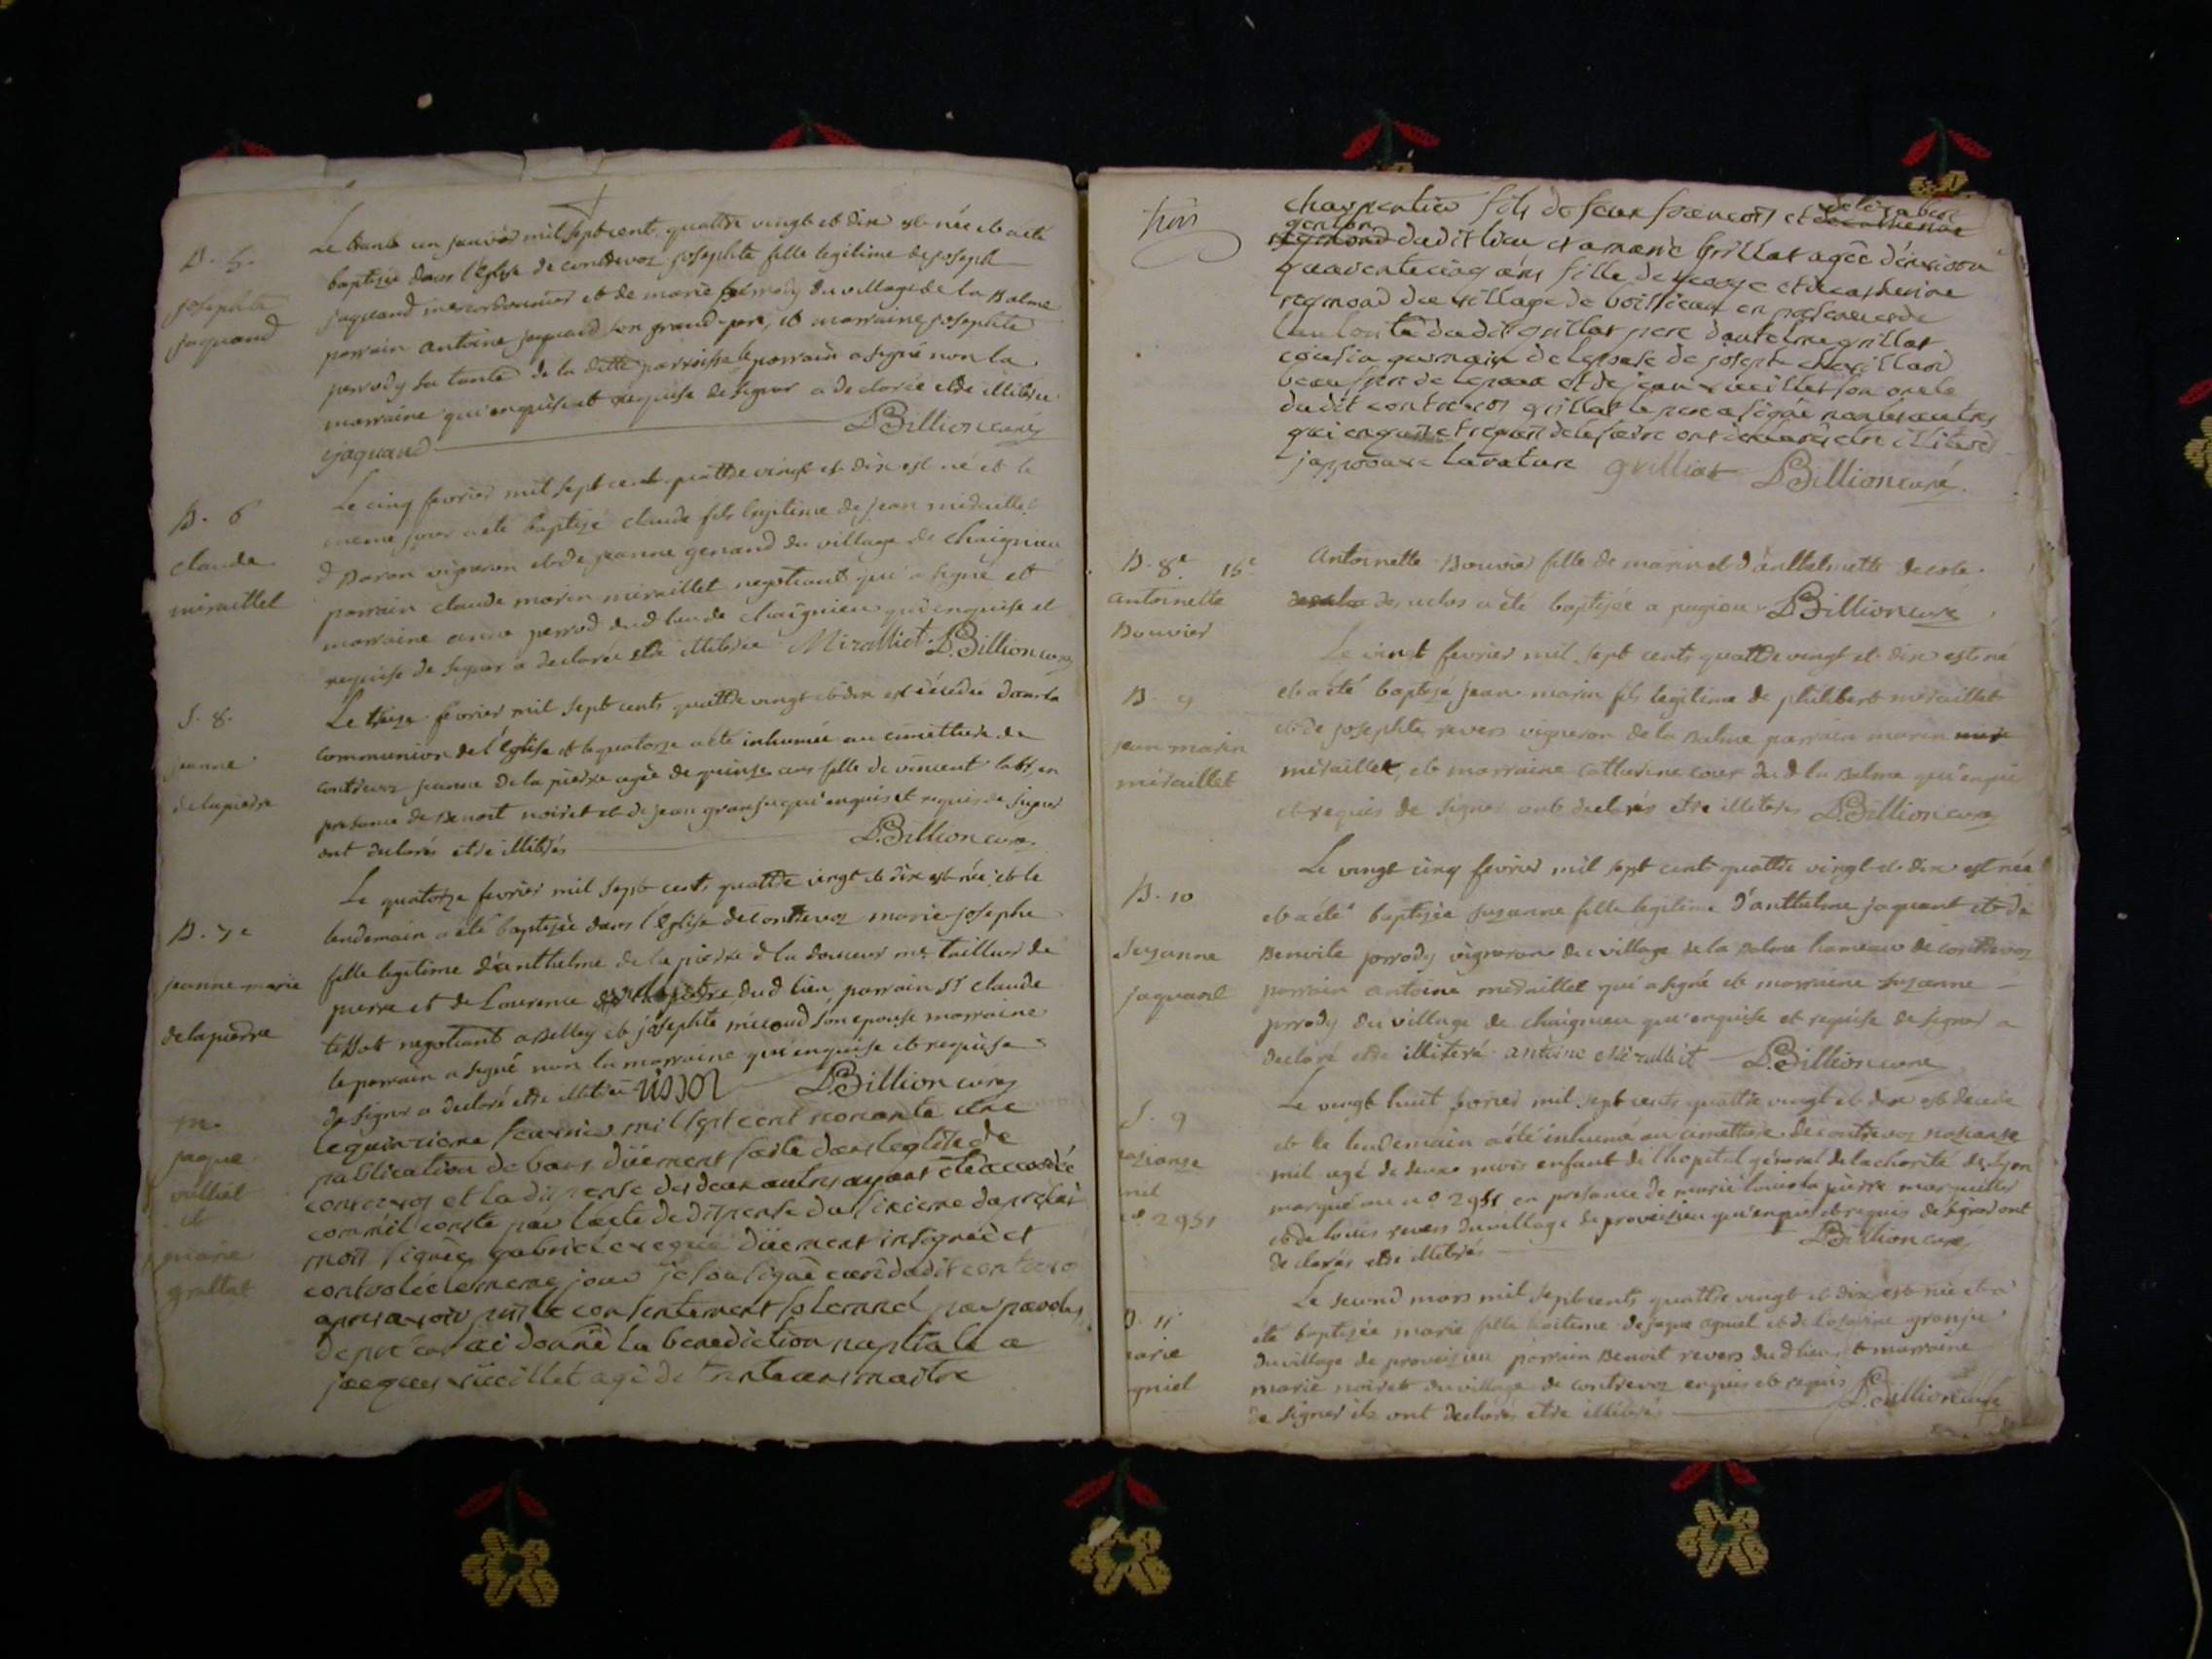 B. 5.
josephte
jaquand
Le trante un janvier mil sept cent quattre vingt et dix est née et a été
baptisée dans l'église de contrevoz josephte fille legitime de joseph
jaquand me cordonnier et de marie perrody du village de la Balme
parrain antoine jaquand son grand-pere, et marraine josephte
perrody sa tante de la ditte parroisse le parrain a signé non la
marraine qui enquise et requise de signer a declarée etre illiterée
jaquand D. Billion curé
B. 6
claude
miraillet
Le cinq fevrier mil sept cent quattre vingt et dix est né et le
meme jour a été baptisé claude fils legitime de jean miraillet
d Baron vigneron et de jeanne genand du village de chaignieu
parrain claude marin miraillet negotiant qui a signé et
marraine anne perrod dud lieu de chaignieu qui enquise et
requise de signer a declarée etre illiterée Miralliet D. Billion curé
S. 8.
jeanne
delapierre
Le treize fevrier mil sept cents quattre vingt et dix est décédée dans la
communion de l'église et le quatorze a été inhumée au cimettiere de
contrevoz jeanne de la pierre agée de quinze ans fille de vincent labt en
presance de Benoit noiret et de jean granje qui enquis et requis de signer
ont declarés etre illiterés D. Billion curé
B. 7e
jeanne-marie
delapierre
Le quatorze fevrier mil sept cents quattre vingt et dix est née et le
lendemain a été baptisée dans l'église de contrevoz marie josephe
fille legitime d'anthelme de la pierre d la douceur me tailleur de
pierre et de Laurence dud lieu parrain sr claude
tissot negotiant a Belley et josephte micoud son epouse marraine
le parrain a signé non la marraine qui enquise et requise
de signer a declaré etre illiterée tissot D. Billion curé
m.
jaque
vuilliet
et
marie
grillat
le quinzieme feuvrier mil sept cent nonante une
publication de bans düement faite dans leglise de
contrevos et la dispense des deux autres ayant été accordée
comm'il conste par l'acte de dispense du sixieme du present
mois signée gabriel eveque düement insignuée et
controlée le meme jour je soussigné curé dudit contrevo
apres avoir pris le consentement solemnel par paroles
de pnt ai donné la benediction nuptiale a
jacques vuillet agé de trente ans maitre
trois
charpentier fils de feux francois et delizabet
genton
reymond dudit lieu et a marie Grillat agée d'environ
quarente cinq ans fille de george et de catherine
reymond du village de boissieux en presence de
dudit grillat pere d'antelme grillat
cousin germain de lepouse de joseph chavillard
beau frere de lepoux et de jean vuillet son oncle
dudit contrevos grillat le pere a signé non les autres
qui enquis et requis de le faire ont declarés etre illiteres
j'approuve la rature grilliat D. Billion curé
B. 8e 15e
antoinette
Bouvier
Antoinette Bouvier fille de marin et d'anthelmette decole
des actes a été baptisée a pugieu D. Billion curé
B. 9
jean marin
miraillet
Le vingt fevrier mil sept cents quattre vingt et dix est né
et a été baptisé jean marin fils legitime de philibert miraillet
et de josephte revers vigneron de la Balme parrain marin
miraillet, et marraine catherine cour dud la Balme qui enquis
et requis de signer ont declarés etre illiteres D. Billion curé
B. 10
Suzanne
jaquand
Le vingt cinq fevrier mil sept cent quattre vingt et dix est née
et a été baptisée suzanne fille legitime d'anthelme jaquant et de
Benoite perrody vigneron du village de la Balme hameau de contrevoz
parrain antoine miraillet qui a signé et marraine suzanne
perrody du village de chaignieu qui enquise et requise de signer a
declaré etre illiteré antoine Miralliet D. Billion curé
S. 9
mil
no 2951
Le vingt huit fevrier mil sept cents quattre vingt et dix est décédé
et le lendemain a été inhumé au cimettiere de contrevoz
mil agé de deux mois enfant de l'hopital général de la charité de Lyon
marqué au no 2951 en presance de marie louis la pierre marguillier
et de louis revers du village de proveisieu qui enquis et requis de signer ont
declarés etre illiterés D. Billion curé
B. 11
marie
agniel
Le second mars mil sept cents quattre vingt et dix est née et a
été baptisée marie fille legitime de jaque agniel et de granje
du village de proveisieu parrain Benoit revers dud lieu et marraine
marie noiret du village de contrevoz enquis et requis
de signer ils ont declarés etre illiterés D. Billion curé